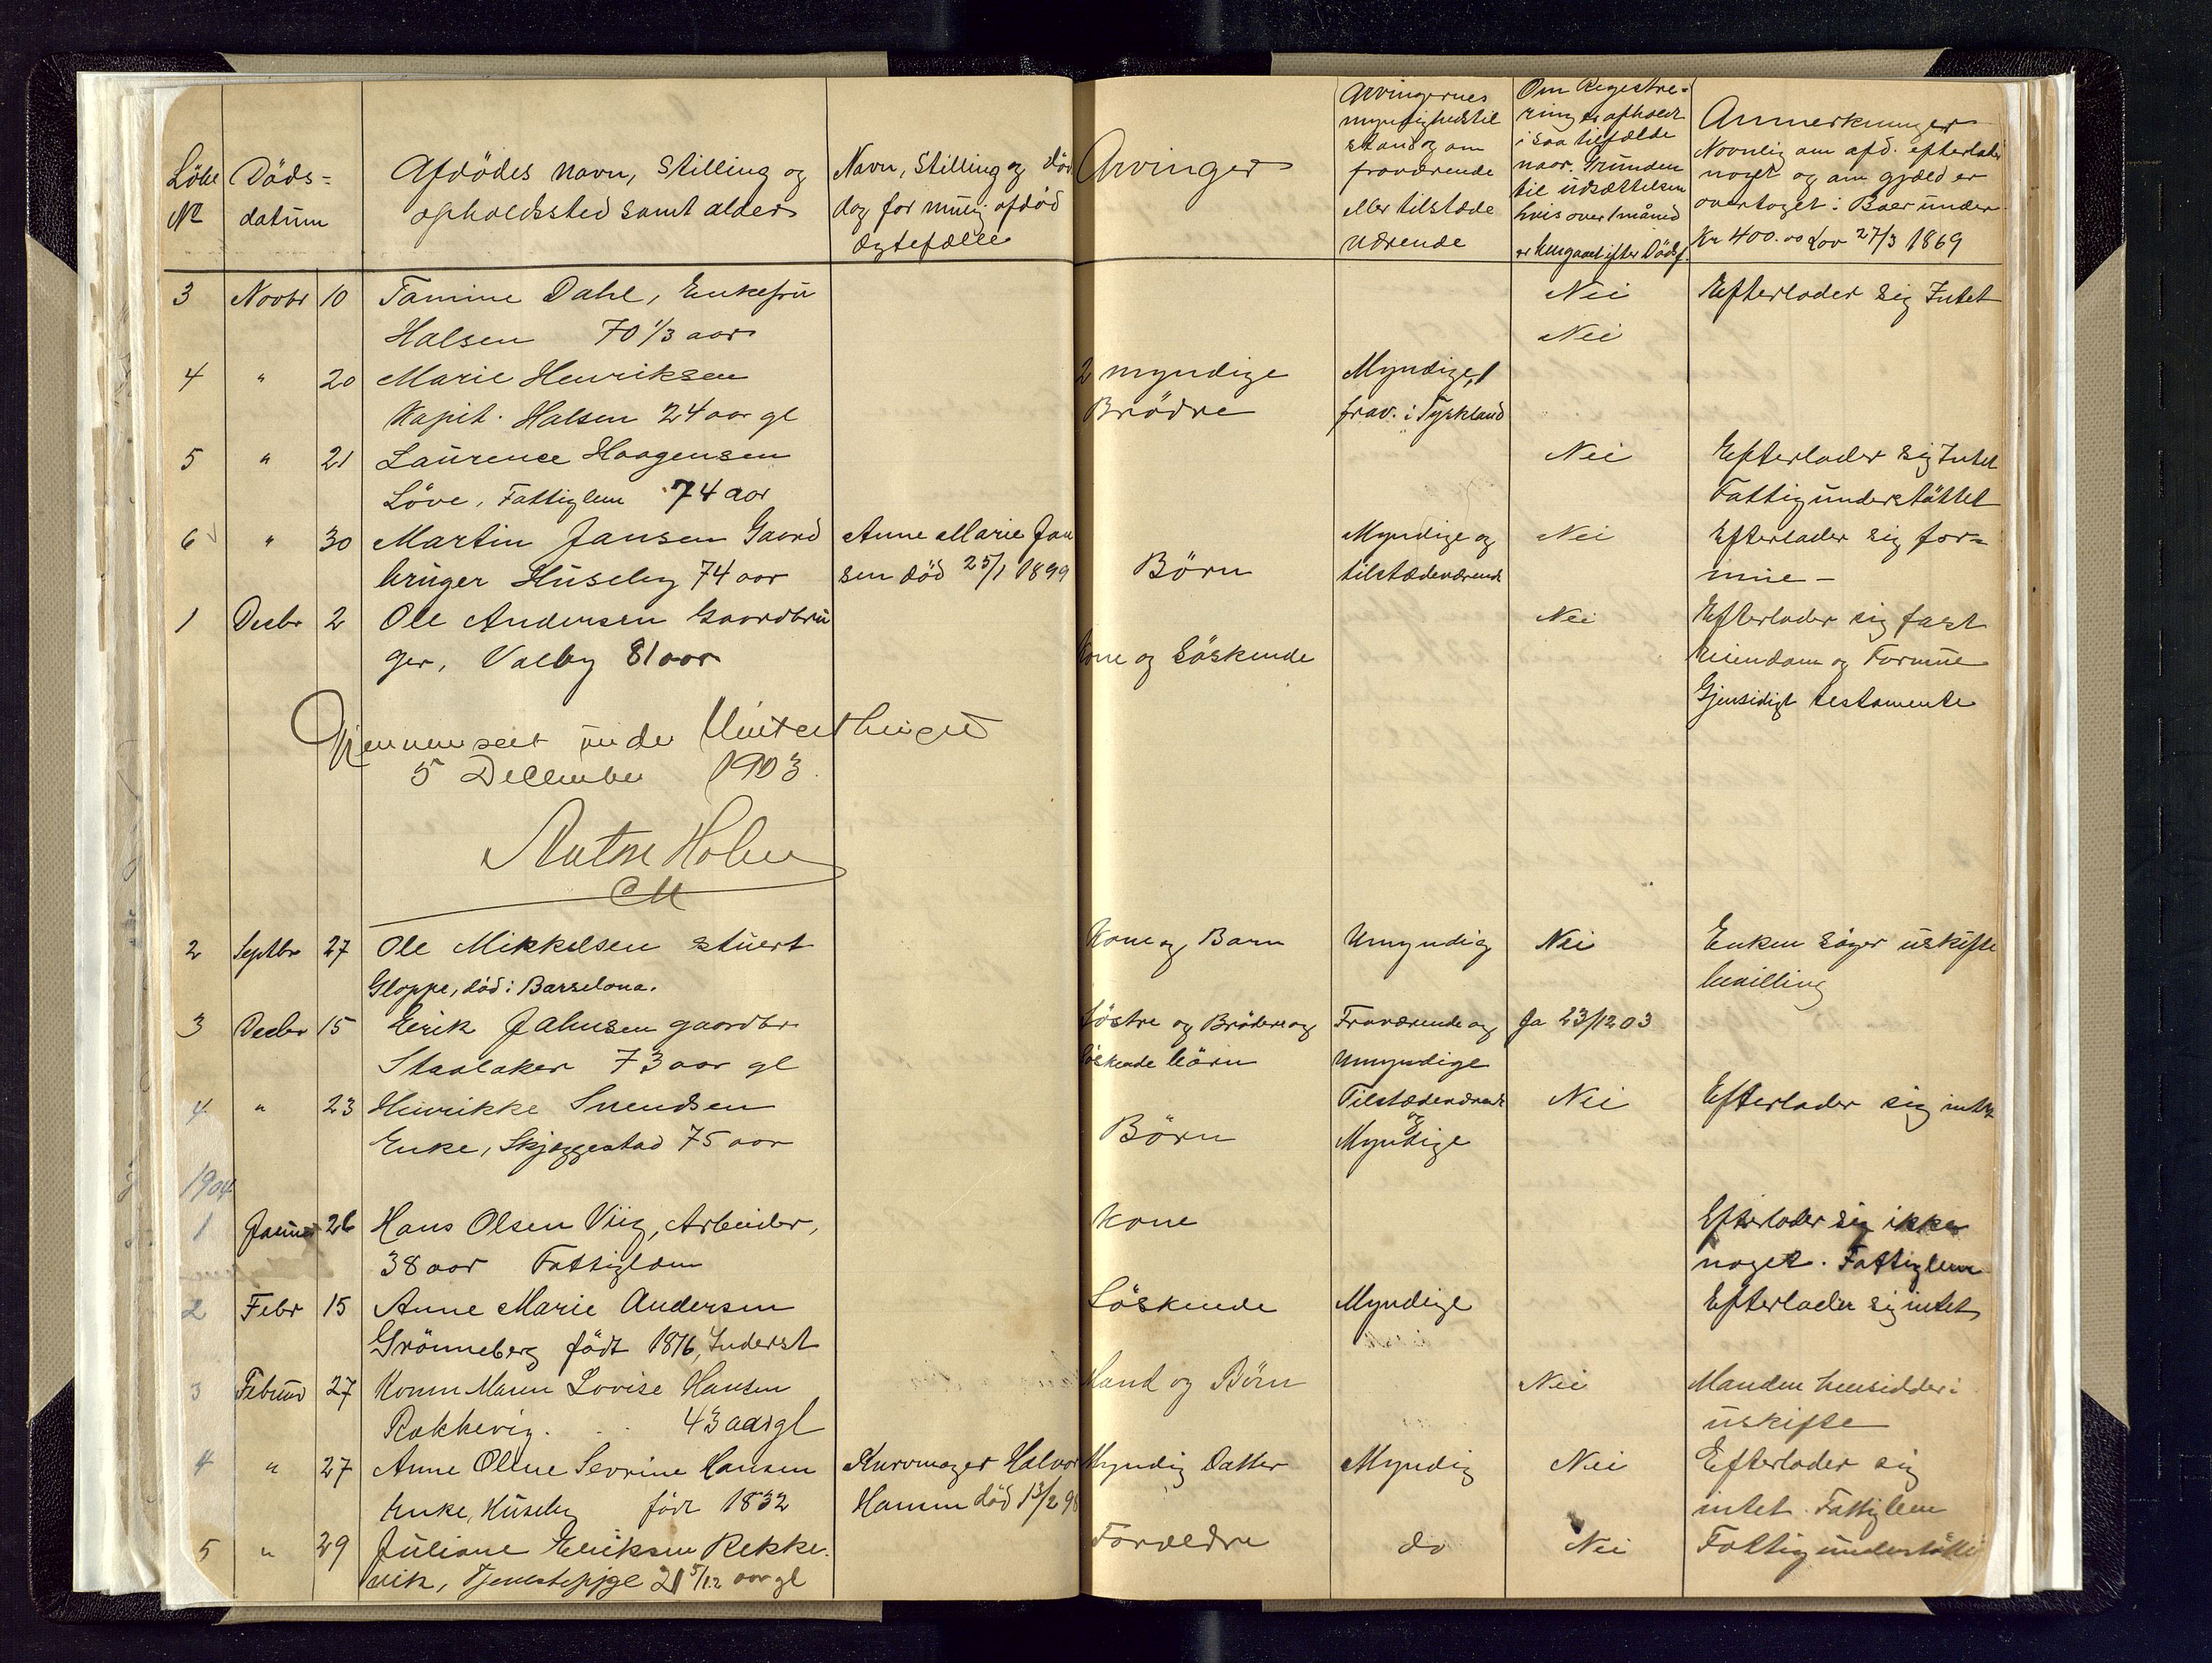 Löbe Nº | Döds-datum | Afdödes navn, Stilling og opholdssted samt alder | Navn, Stilling og död dag for mulig afdöd Ægtefælle | Arvinger | Arvingernes myndighedstilstand og om fraværende eller tilstede værende | Om Registrering er afholdt i saa tilfælde naar. Grunden til udsættelsen hvis over 1 måned er hengaaet efter Dödsf. | Anmerkninger Navnlig om afd. efterlader noget og om gjæld er overtaget i Boer under Kr 400.00 Lov 27/3 1869
3 Novbr 10 Tamine Dahl, Enkefru | Nei | Efterlader sig Intet
Halsen 70 1/3 aar | Nei
4 " 20 Marie Henriksen | 2 myndige | Myndige, 1
Kapit. Halsen 24 aar gl | Brödre | frav. i Tyskland
5 " 21 Laurence Haagensen | Nei | Efterlader sig Intet
Löve, Fattiglem 74 aar | Fattigunderstöttet
6 " 30 Martin Jansen Gaard | Anne Marie Jan | Myndige og | Nei | Efterlader sig for-
bruger Huseby 74 aar | sen död 25/1 1899 | Börn | tilstedeværende | mue –
1 Decbr 2 Ole Andersen Gaardbru | Nei | Efterlader sig fast
ger, Valby 81 aar | Kone og Söskende | Eiendom og Formue
Gjensidigt testamente
Gjennemseet under Vinterthinget
5 December 1903.
Anton Holm
2 Septbr 27 Ole Mikkelsen stuert | Kone og Barn | Umyndig | Nei | Enken söger uskifte
Gloppe, död i Barselona. | bevilling
3 Decbr 15 Eerik Jahnsen gaardbr | Söstre og Brödre og | Fraværende og | Ja 23/12 03
Staalaker 73 aar gl | Söskende börn | Umyndige
4 " 23 Henrikke Svendsen | Tilstedeværende | Nei | Efterlader sig intet
og
Enke, Skjeggestad 75 aar | Börn | Myndige
1904
1 Januar 26 Hans Olsen Viig, Arbeider, | Kone | Efterlader sig ikke
38 aar Fattiglem | noget. Fattiglem
2 Febr 15 Anne Marie Andersen | Söskende | Myndige | Efterlader sig intet
Grönneberg födt 1876, Inderst
3 Februar 27 Konen Maren Lovise Hansen | Mand og Börn | Nei | Manden hensidder i
Rakkevig. 43 aar gl | uskifte
4 " 27 Anne Oline Sevrine Hansen | Kurvmager Halvor | Myndig Datter | Myndig | Nei | Efterlader sig
Enke, Huseby född 1832 | Hansen död 13/2 98 | intet. Fattiglem
5 " 29 Juliane Eriksen Rekke- | Foreldre | do | Nei | Fattigunderstötte
vik, Tjenestepige 21 5/12 aar gl